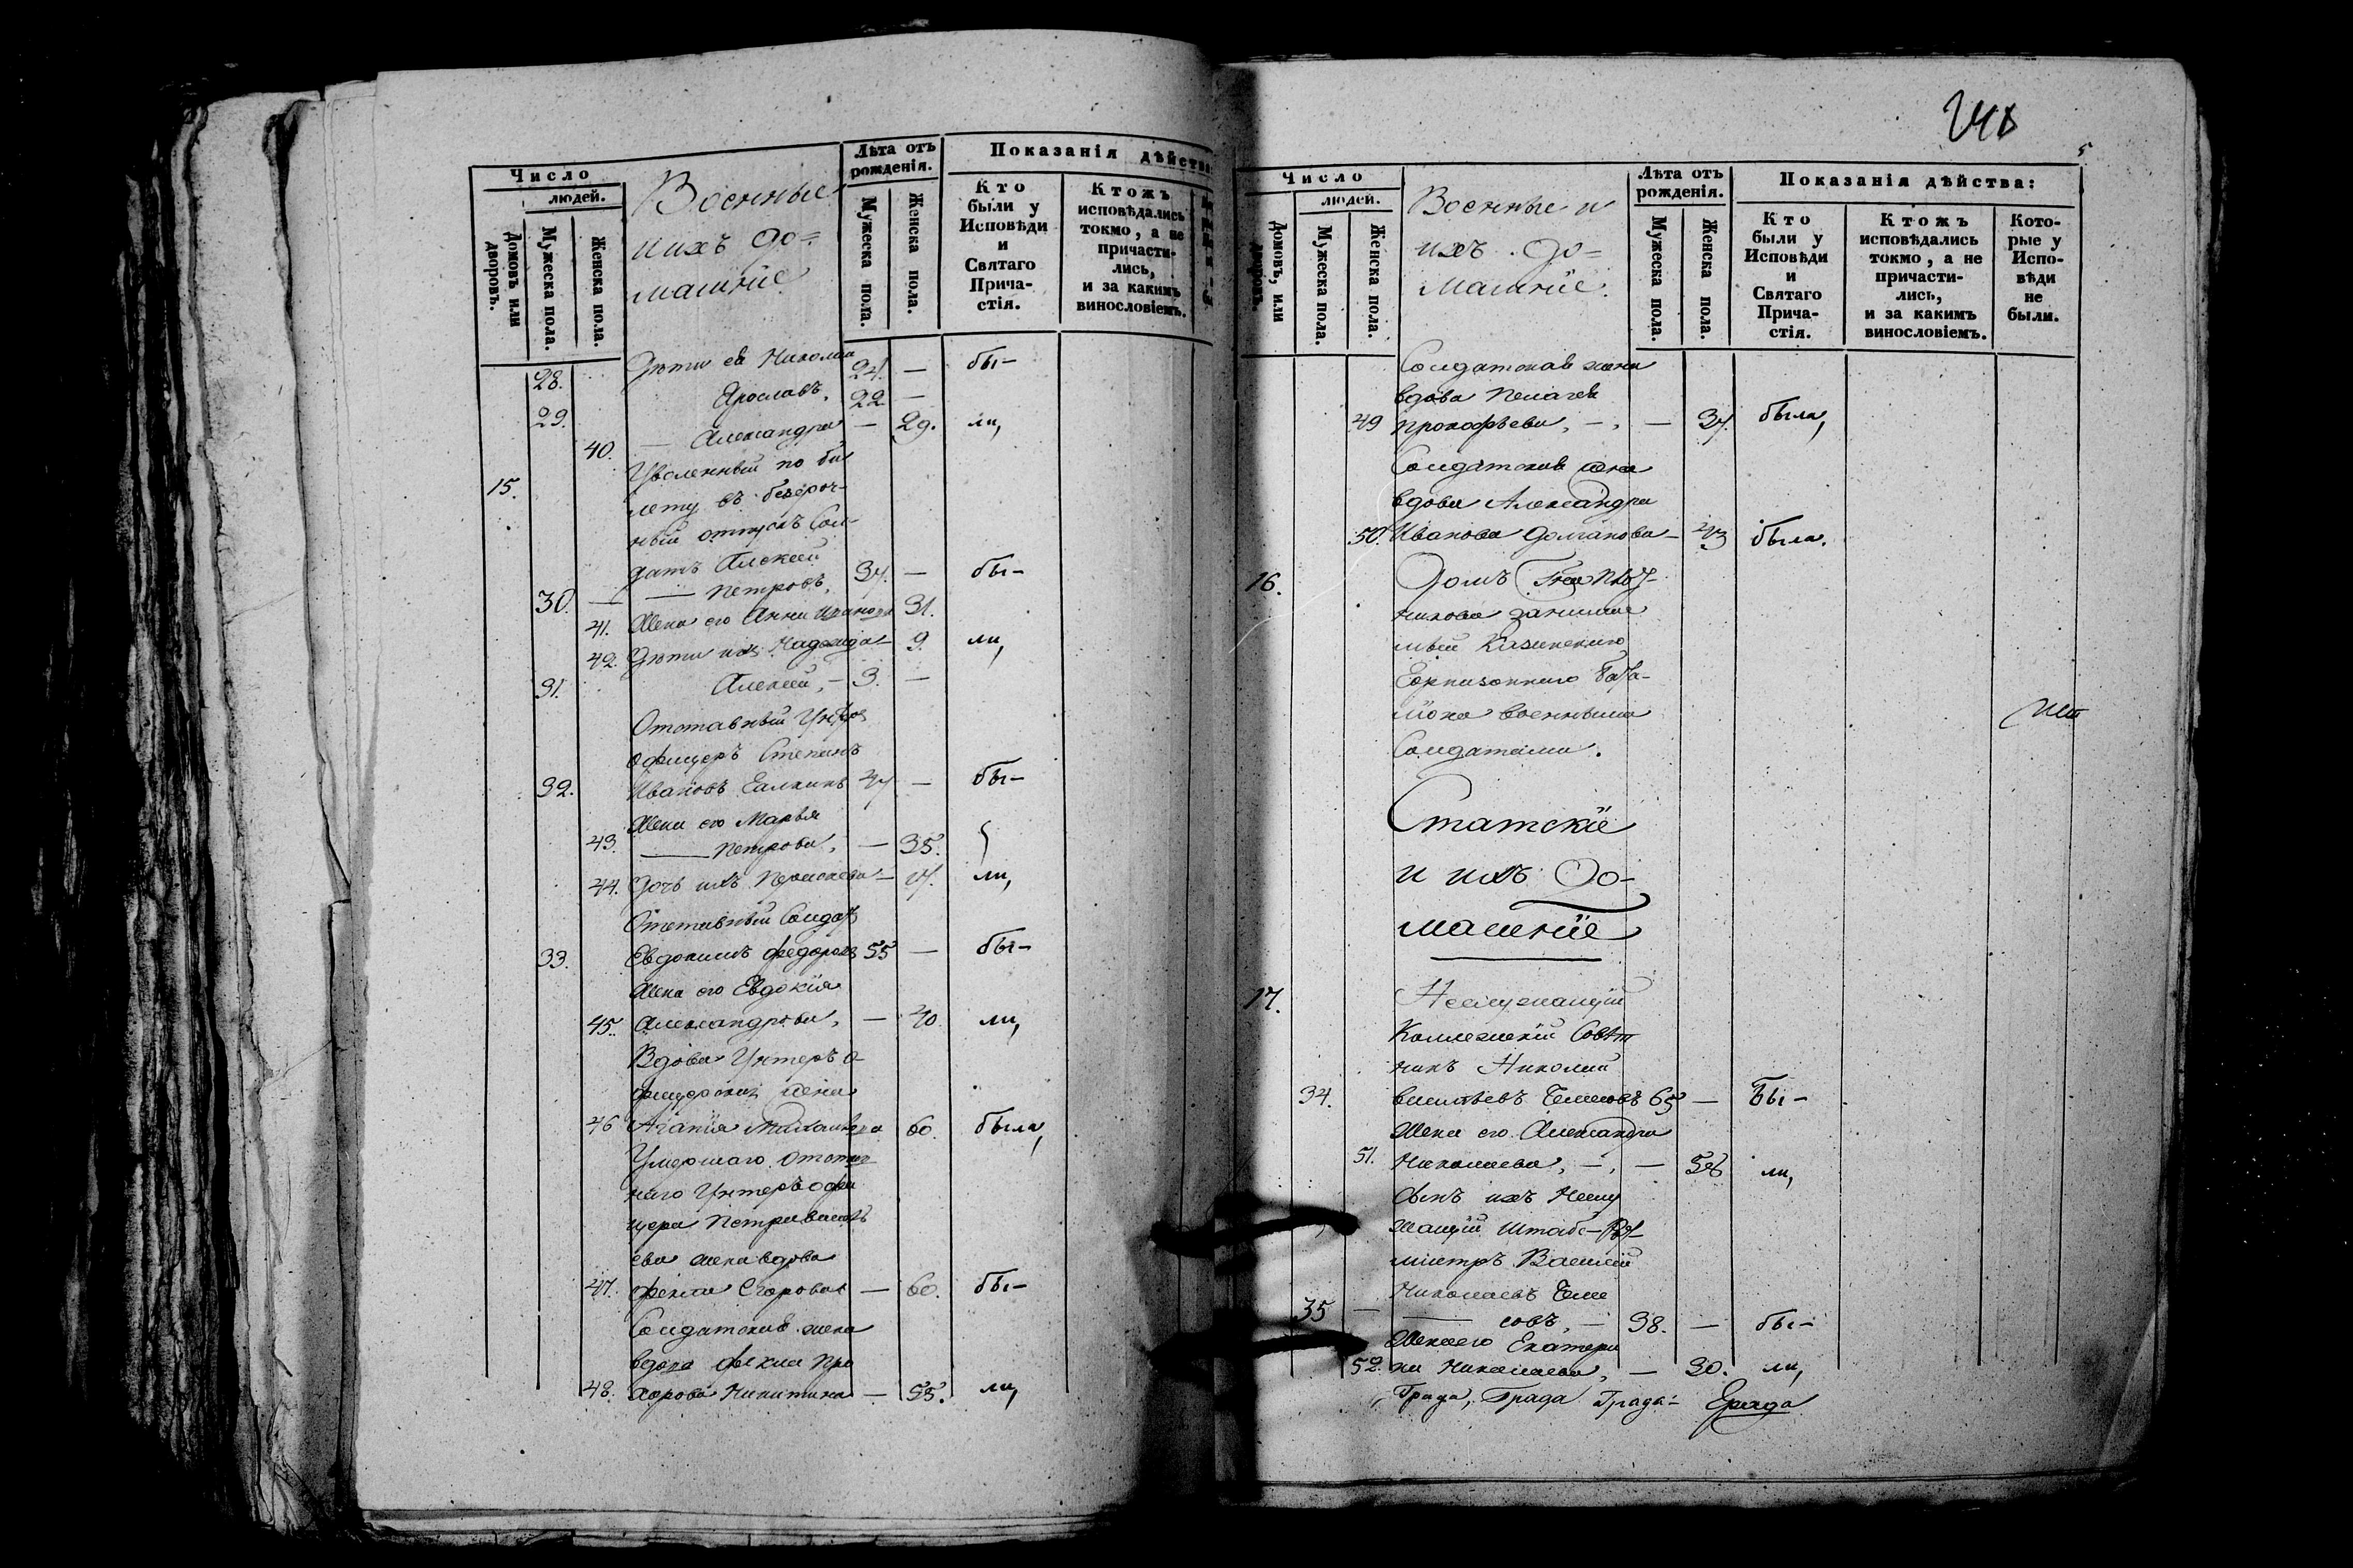 Число
людей.
Домовъ или дворовъ.
Мужеска пола.
Женска пола.
Военные
и ихъ до=
машніе
Лѣта отъ рожденія.
Мужеска пола.
Женска пола.
Показанія дѣйства
Кто были у Исповѣди и Святаго Прича-стія.
Ктожъ исповѣдались токмо, а не причасти-лись, и за какимъ винословіемъ.
28. Дѣти ея Николай 24. — бы-
29. Ярославъ, 22 —
40. — Александра — 29. ли,
15. Уволенный по би
лету въ безсроч-
ный отпускъ Сол-
датъ Алексей
30. — Петровъ, 34. — бы-
41. Жена его Анна Иванова 31.
42. Дѣти ихъ Надежда — 9. ли,
31. Алексей, — 3. —
Отставный Унтеръ
офицеръ Степанъ
32. Ивановъ Галкинъ 44 — бы-
Жена его Марья
43. — Петрова, — 35.
44. Дочь ихъ — 14. ли,
Отставный Солдатъ
33. Евдокимъ Федоровъ 55 — бы-
Жена его Евдокія
45. Александрова, — 40. ли,
Вдова Унтеръ о-
фицерская жена
46 Агапія 60. была,
Умершаго отстав
наго Унтеръ офи
цера Петра Василь
ева жена вдова
47. Фекла Егорова — 60. бы-
Солдатская жена
вдова Фекла Про
48. хорова Никитина — 55. ли,
248
5
Число
людей.
Домовъ, или дворовъ.
Мужеска пола.
Женска пола.
Военные и
ихъ до=
машніе.
Лѣта отъ рожденія.
Мужеска пола.
Женска пола.
Показанія дѣйства:
Кто были у Исповѣди и Святаго Прича-стія.
Ктожъ исповѣдались токмо, а не причасти-лись, и за какимъ винословіемъ.
Кото-рые у Испо-вѣди не были.
Солдатская жена
вдова Пелагея
49 Прокофьева, —, — 34. была,
Солдатская жена
вдова Александра
50. Иванова Долганова — 43 была.
16. Домъ
никова занимае
мый Казанскаго
Гарнизоннаго Бата-
ліона военными
Солдатами.
Статскіе
и ихъ До-
машніе
17. Неслужащій
Коллежскій Совѣт
никъ Николай
34. Васильевъ 65 — Бы-
Жена его Александра
51. Николаева, —, — 56 ли,
Сынъ ихъ Неслу
жащій Штабс-Рот-
мистръ Василій
Николаевъ
35 — совъ, — 38. — бы-
Жена его Екатери
52. на Николаева, — 30. ли,
Града, Града Града- Града